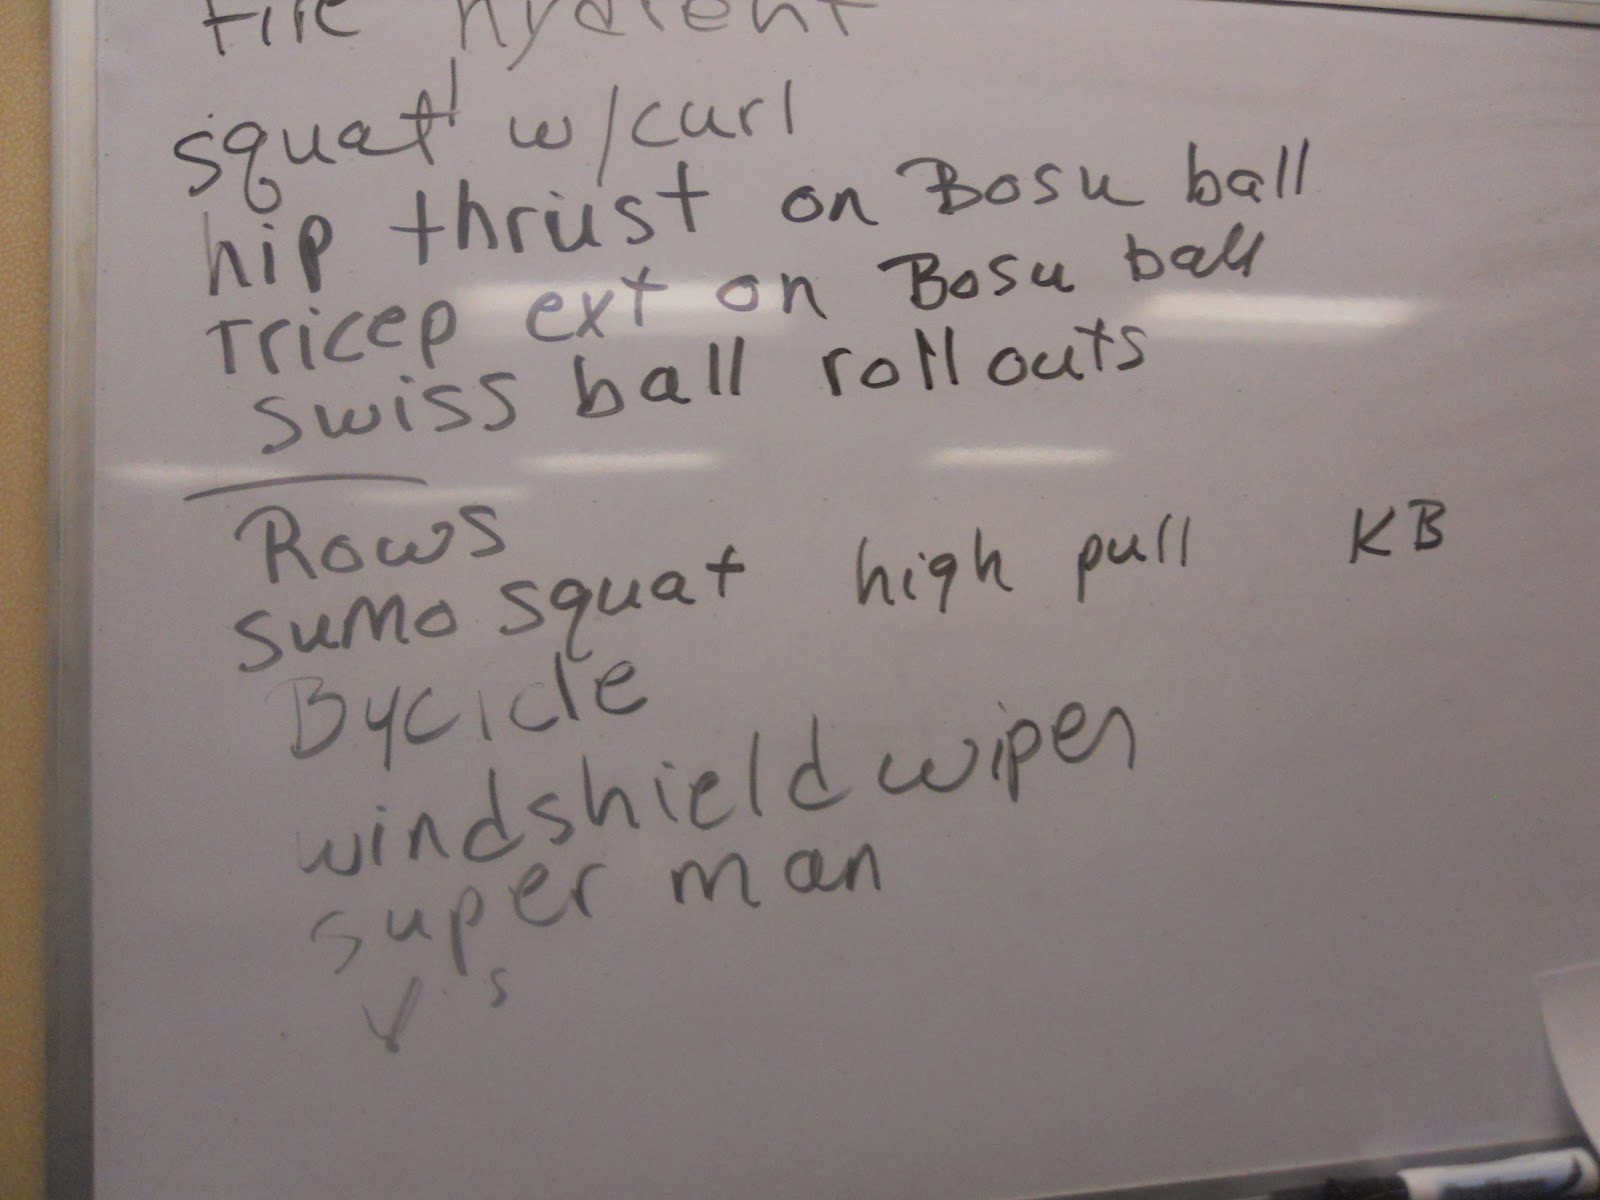 fire hydrent
squat w/curl
hip thrust on Bosu ball
Tricep ext on Bosu ball
swiss ball roll outs
Rows
sumo squat high pull KB
Bycicle
windshield wiper
super man
V's